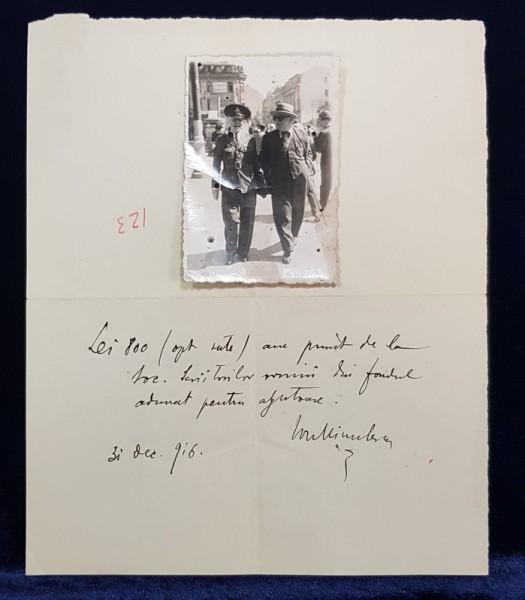 123
Lei 800 (opt sute) am primit de la
Soc. Scriitorilor români din fondul
adunat pentru ajutoare.
Ion Minulescu
31 dec. 916.